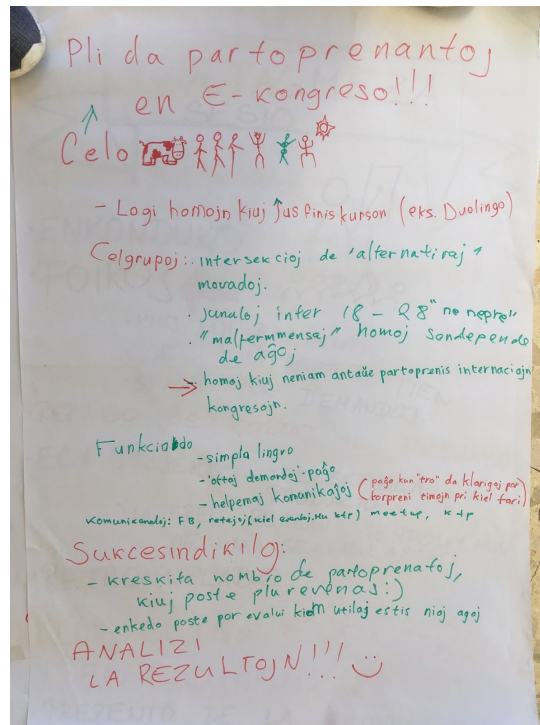 Pli da partoprenantoj
en E-kongreso!!!
Celo
- Logi homojn kiuj ĵus finis kurson (eks. Duolingo)
Celgrupoj: . intersekcioj de "alternativaj"
movadoj.
. junuloj inter 18 - 28 "ne nepre"
. "malfermmensaj" homoj sendepende
de aĝoj
→ . homoj kiuj neniam antaŭe partoprenis internaciajn
kongresojn.
Funkciado
- simpla lingvo
- 'oftaj demandoj'-paĝo
- helpemaj komunikaĵoj (paĝo kun "tro" da klarigoj por
forpreni timojn pri kiel fari)
Komunikanaloj: FB, retejoj (kiel eventoj.hu ktp) meetup, ktp
Sukcesindikiloj:
- kreskita nombro de partoprenatoj,
kiuj poste plu revenas :)
- enkedo poste por evalui kiom utilaj estis niaj agoj
ANALIZI
LA REZULTOJN!!!